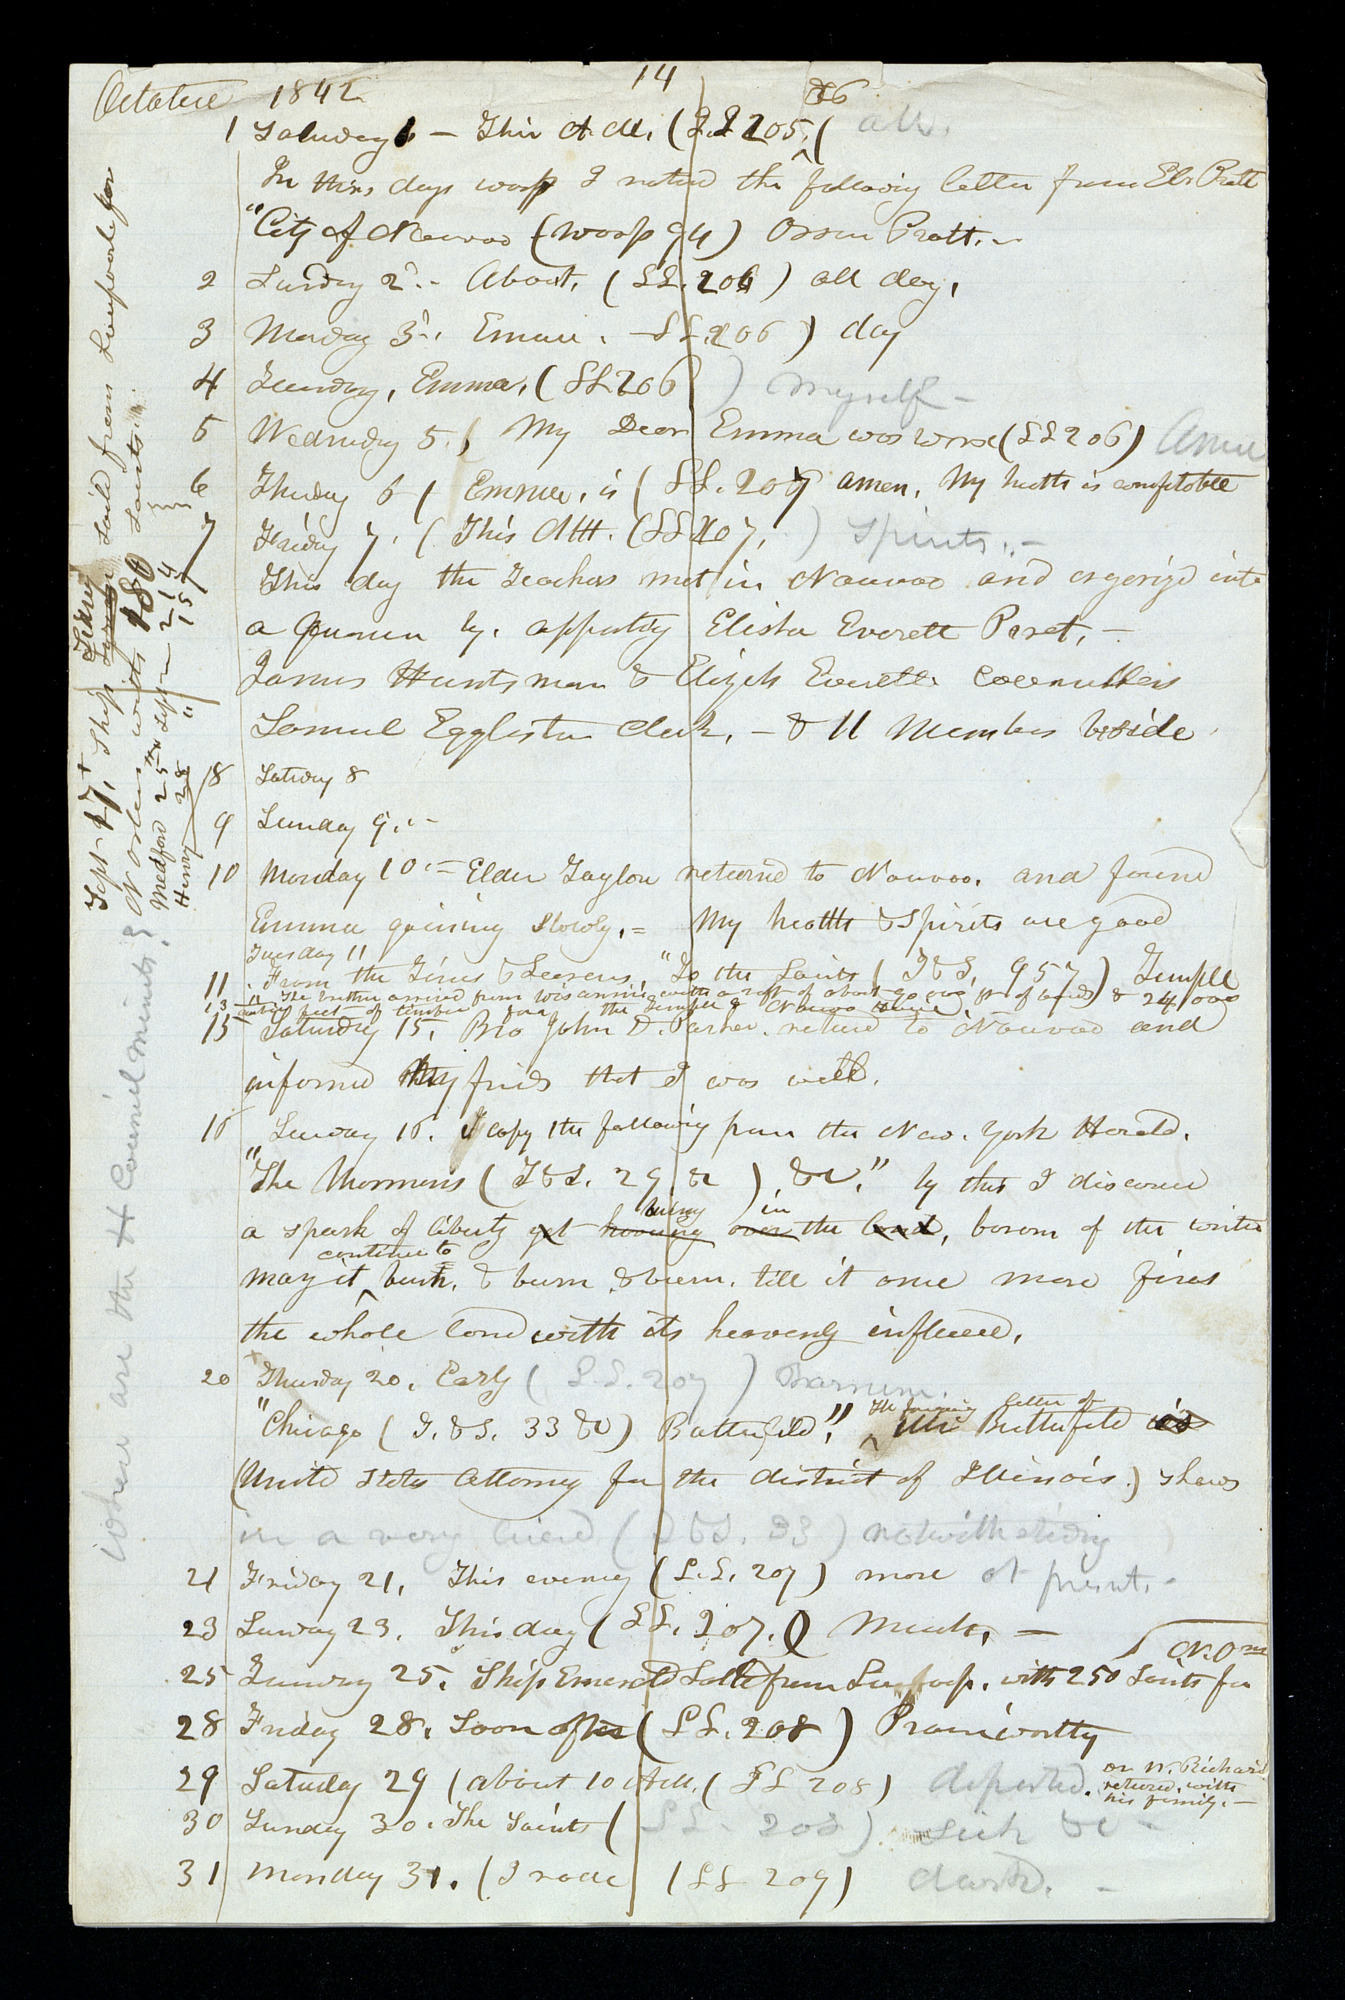 October 1842
14
36
1 Saturday 1 — This A. M. (L.L 205. ( all.
In this days wasp I noticed the following letter from Eld Pratt
"City of Nauvoo (wasp 94) Orson Pratt. —
2 Sunday 2. - About, (LL. 206) all day,
3 Monday 3. Emma. — LL. 206) day
4 Tuesday, Emma, (LL 206 ) myself —
5 Wednesday 5. ( My Dear Emma was worse (LL 206) Amen
6 Thursday 6 ( Emma, is ( LL. 207 amen. My health is comfortable
7 Friday 7. ( This AM. (LL 207. ) spirits. —
This day the Teachers met in Nauvoo and organized into
a Quorum by. appointing Elisha Everett Prest, —
James Huntsman & Elijah Everett Councillers
Samuel Eggleston Clerk, — & 11 Members beside
8 Saturday 8
9 Sunday 9. —
10 Monday 10. = Elder Taylor returned to Nauvoo. and found
Emma gaining slowly, = My health & spirits are good
Tuesday 11
11 From the Times & Seasons, "To the Saints ( T&S, 957 ) Temple
13 " The brethren arrived from Wisconsin with a raft of about 90,000 ft of boards & 24,000
cubic feet of timber for the Temple & Nauvoo House
15 Saturday 15. Bro John D. Parker. returned to Nauvoo and
informed my friends that I was well.
16 Sunday 16. I copy the following from the New. York Herald.
"The Mormons ( T&S. 29 &c ) &c." by this I discover
a spark of liberty yet hovering over the land, bosom of the writer
burning in
continue to
may it burn, & burn & burn. till it once more fires
the whole land with its heavenly influence.
20 Thursday 20. Early ( L.L. 207 ) Barnum.
"Chicago ( T. &S. 33 &c) Butterfield," Mr Butterfield is
The foregoing letter of
(United States Attorney for the district of Illinois.) shews
in a very lucid ( T&S. 33 ) notwithstanding
21 Friday 21. This evening (L.L. 207) more at present. -
23 Sunday 23. This day ( LL. 207. ) Much, —
N. Orn
25 Tuesday 25. Ship Emerald Sailed from Liverpool. with 250 Saints for
28 Friday 28. Soon after ( LL. 208 ) Praiseworthy
29 Saturday 29 (about 10 AM. ( LL 208) departed.
Dr W. Richards
returned, with
his family. —
30 Sunday 30. The Saints ( LL. 208 ) sick &c —
31 Monday 31. ( I rode (LL 209) dark. —
Sept 17, Ship Sidney Said from Liverpool for
N Orleans with 180 Saints.
Medford 25th Sep — 214
Henry 28 " 157
Where are the H Council minutes?